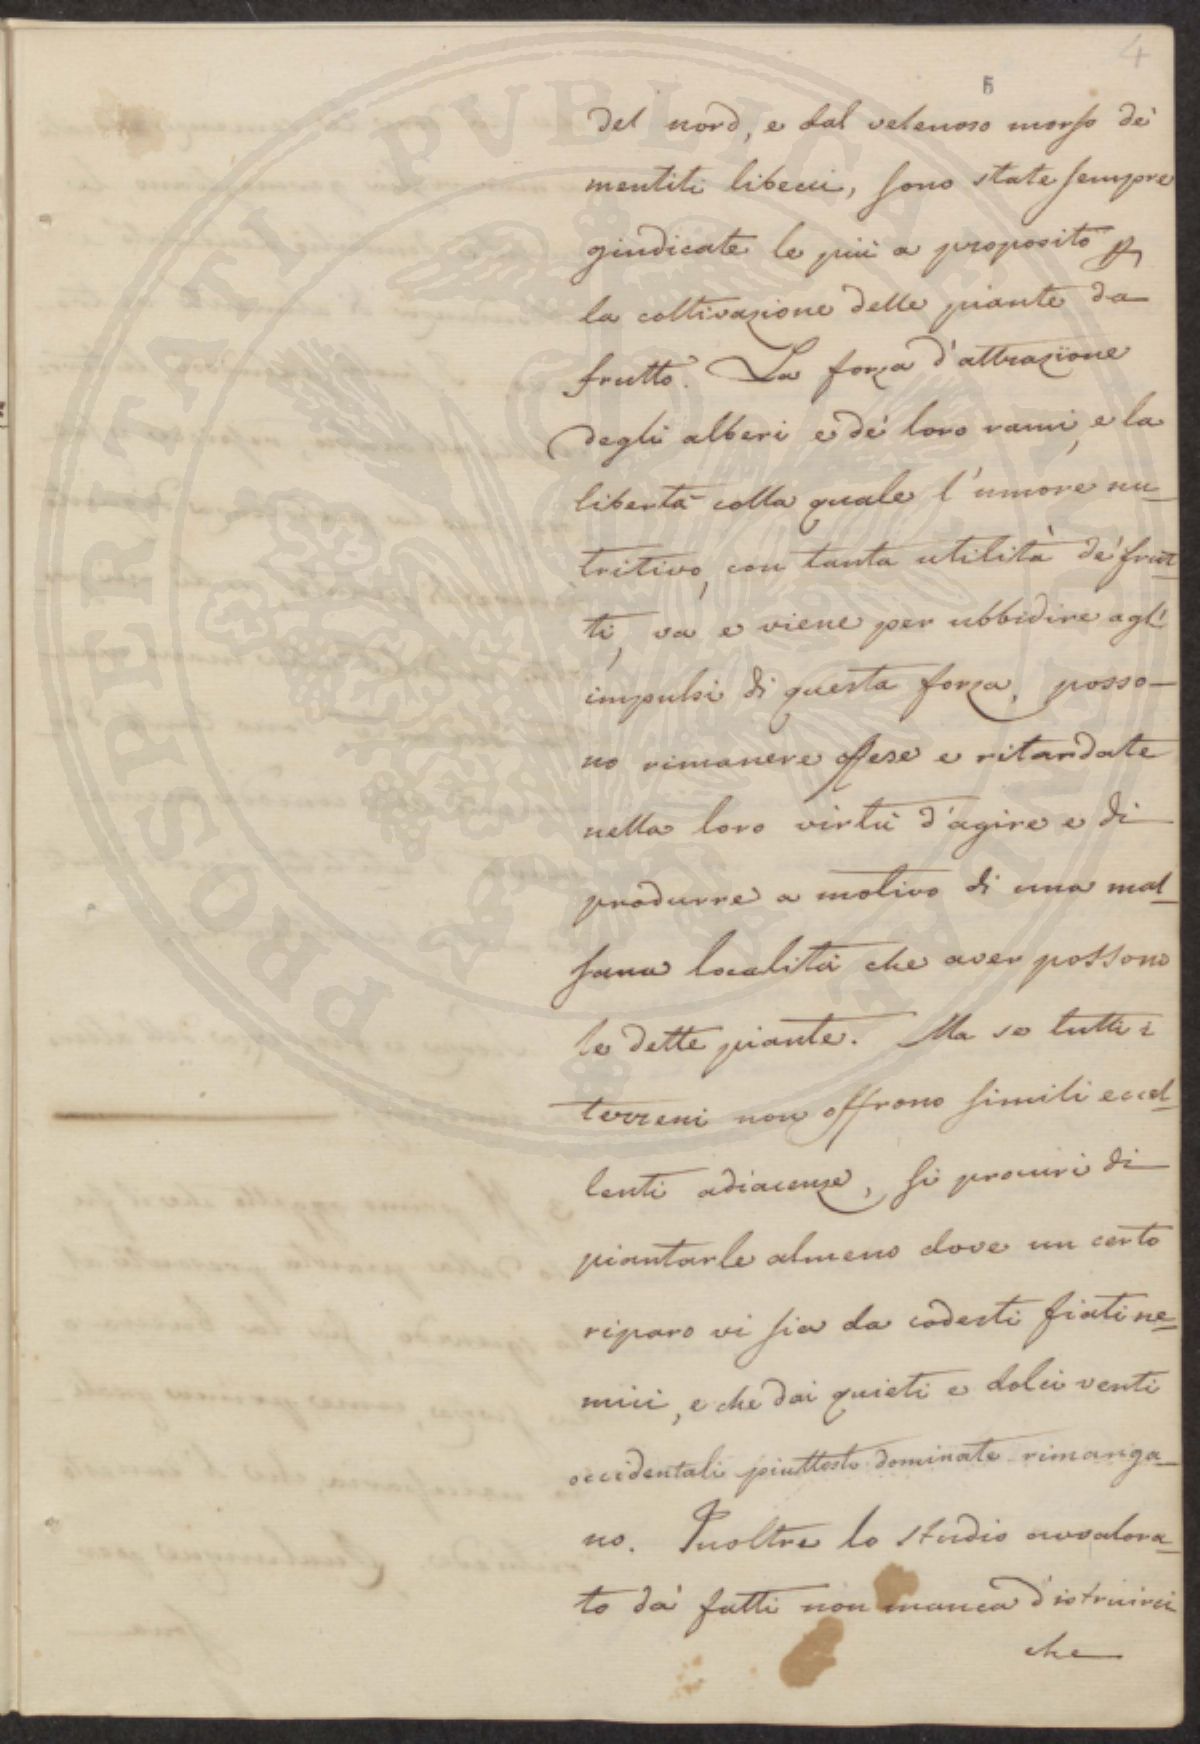 4
5
del nord, e dal velenoso morso de'
mentiti libecci, sono state sempre
giudicate le più a proposito p
la coltivazione delle piante da
frutto. La forza d'attrazione
degli alberi e de' loro rami, e la
libertà colla quale l'umore nu-
tritivo, con tanta utilità de' frut-
ti, va e viene per ubbidire agl'
impulsi di questa forza, posso-
no rimanere offese e ritardate
nella loro virtù d'agire e di
produrre a motivo di una mal-
sana località che aver possono
le dette piante. Ma se tutti i
terreni non offrono simili eccel-
lenti adiacenze, si procuri di
piantarle almeno dove un certo
riparo vi sia da codesti fiati ne-
mici, e che dai quieti e dolci venti
occidentali piuttosto dominate rimanga-
no. Inoltre lo studio avvalora-
to da' fatti non manca d'istruirci
che
PROSPERITATI PVBLICAE